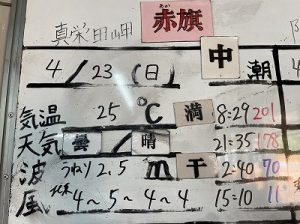 真栄田岬
あか
赤旗
中潮
4/23(日)
気温 25℃ 満 8:29 201
天気 曇/晴 21:35 178
波 うねり2.5m 干 2:40 70
風 北東 4~5~4~4 15:10 11